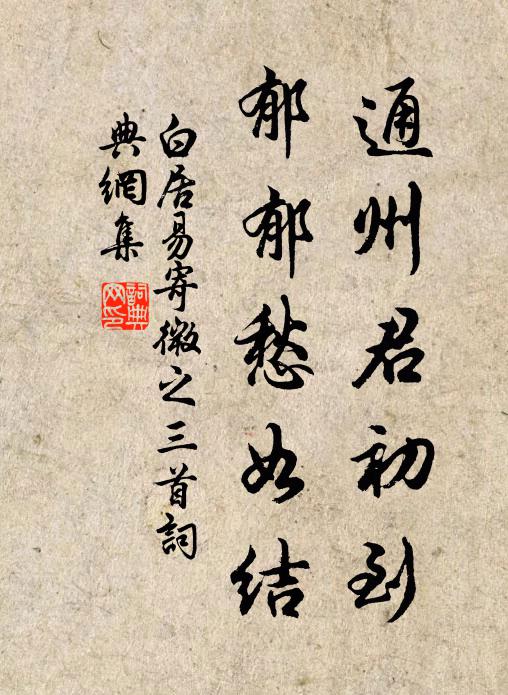 通州君初到
郁郁愁如结
白居易寄微之三首詞
典網集
詞典
网印